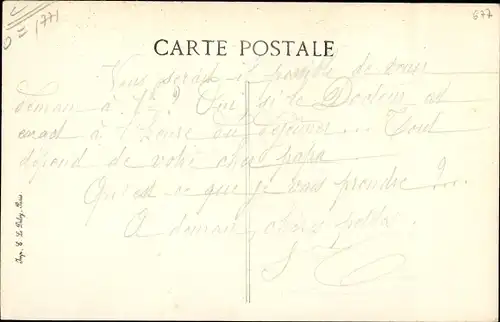 1771
677
CARTE POSTALE
Vous serait il possible de venir
demain à 1h ½ ? Oui si le Docteur est
exact à l'heure du déjeuner... Tout
dépend de votre cher papa
Qu'est-ce que je vais prendre ?...
A demain, chères
Imp. E. Le Deley, Paris